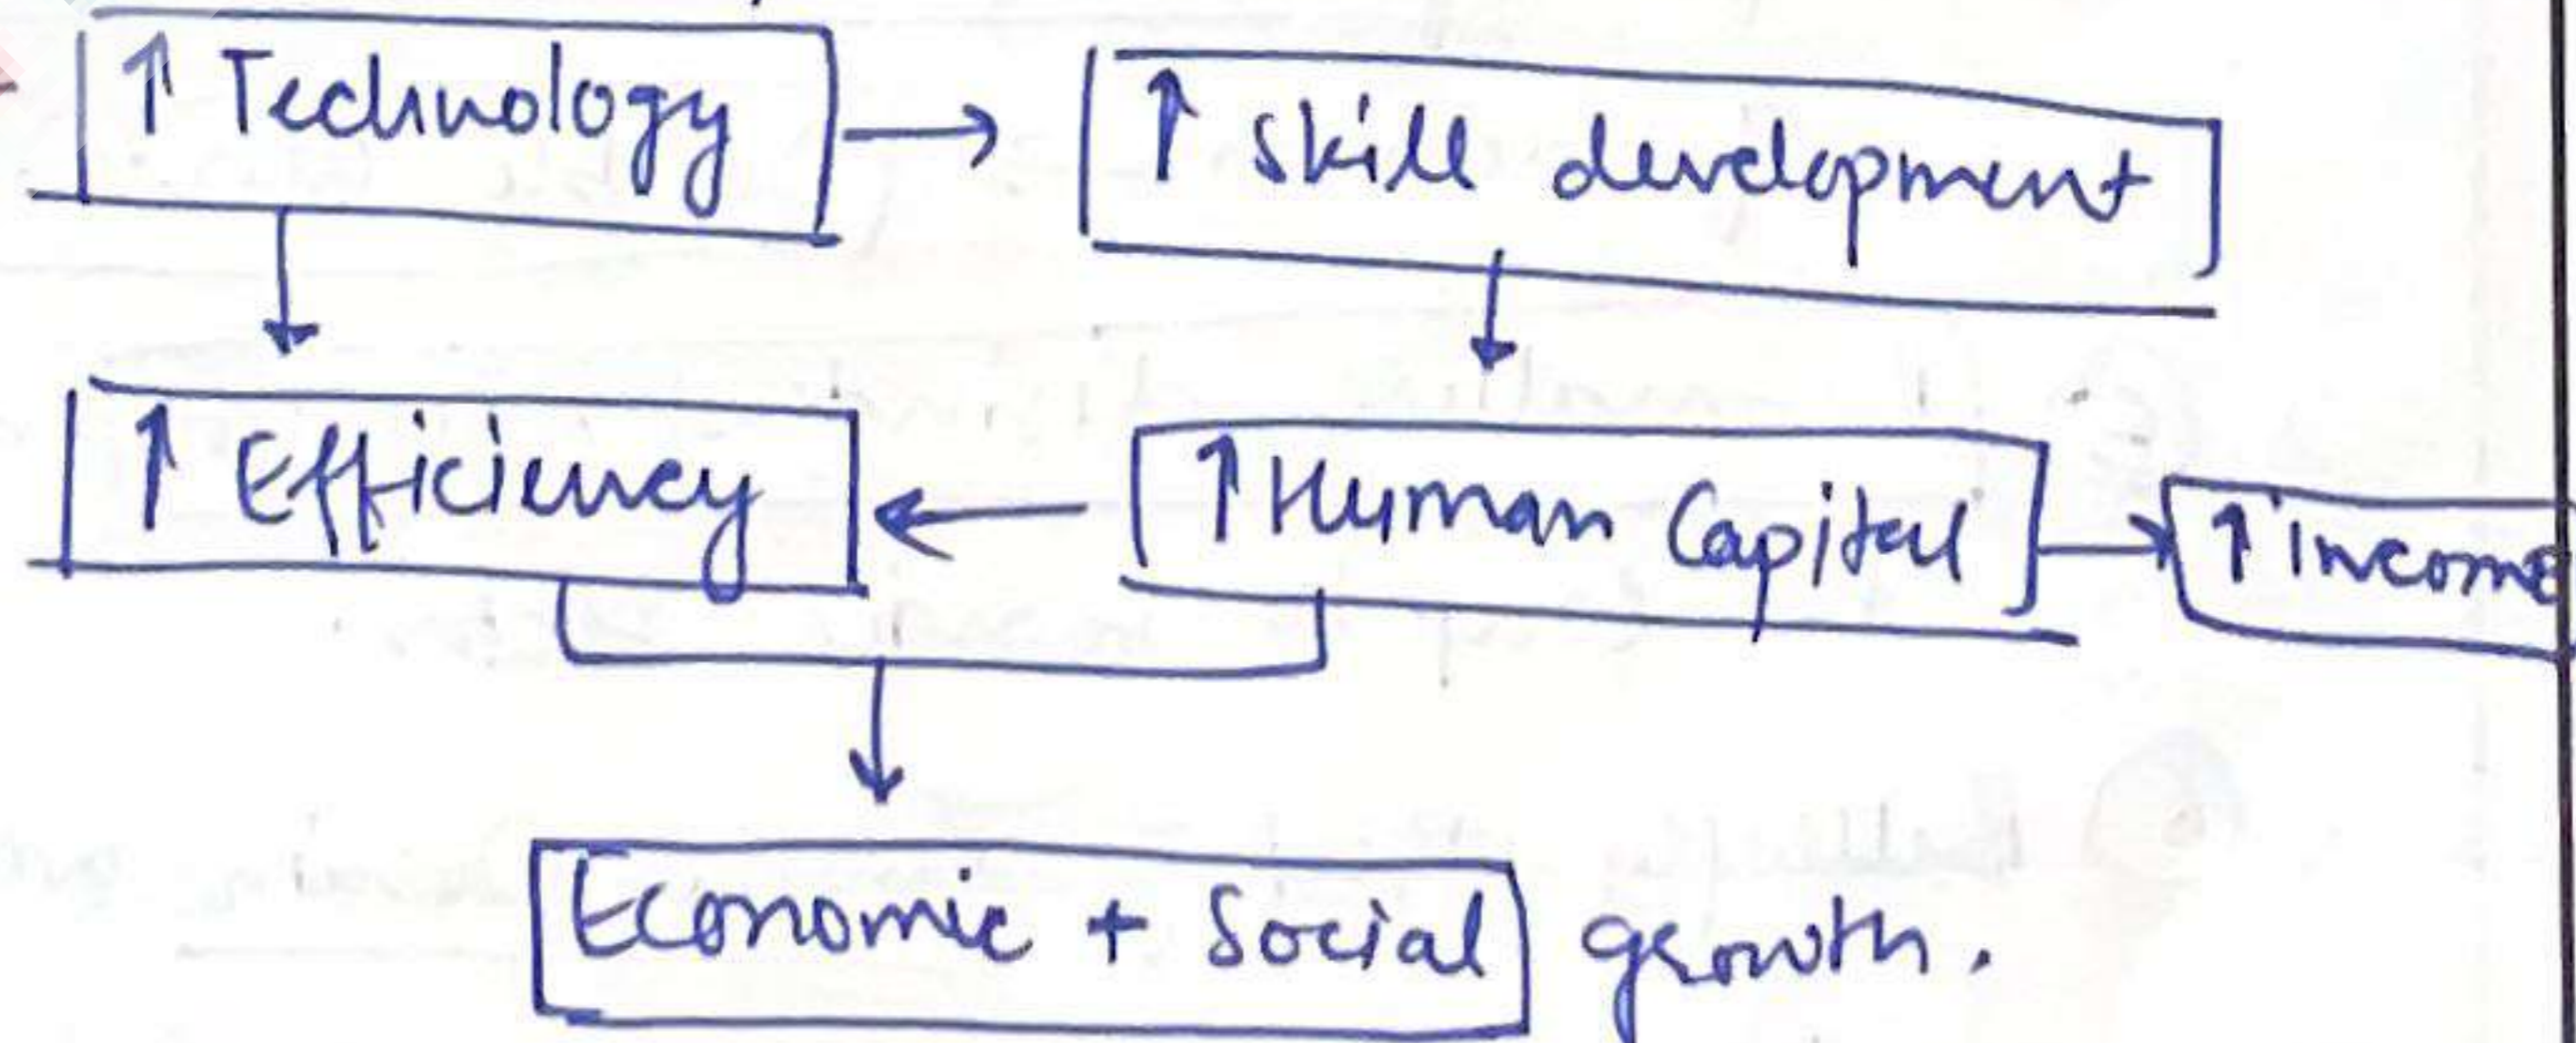 ↑ Technology → ↑ Skill development
↑ Efficiency ← ↑ Human Capital → ↑ income
Economic + Social growth.